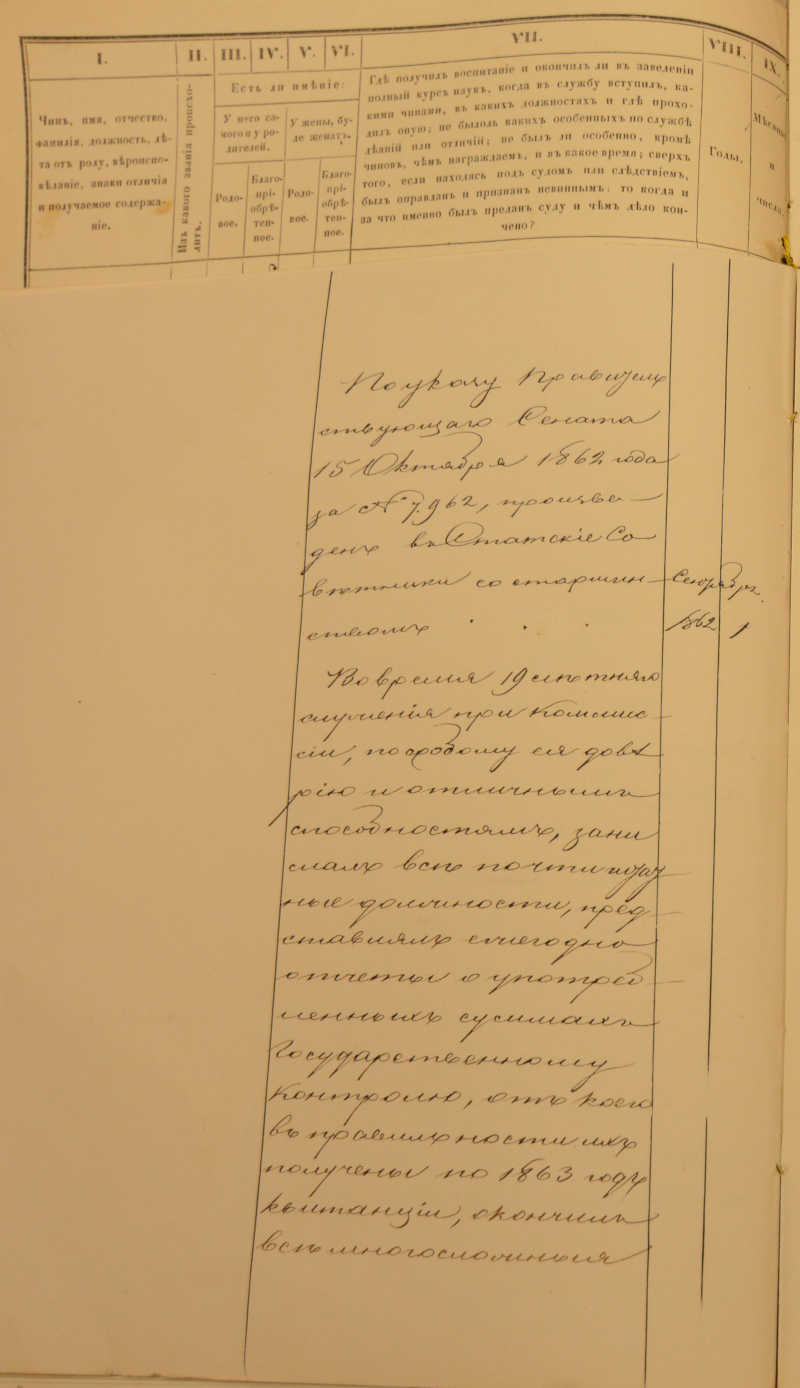 I.
II.
III.
IV.
V.
VI.
VII.
VIII.
IX.
Чинъ, имя, отчество,
фамилія, должность, лѣ-
та отъ роду, вѣроиспо-
вѣданіе, знаки отличія
и получаемое содержа-
ніе.
Изъ какого званія происхо-
дитъ.
Есть ли имѣніе:
У него са-
мого и у ро-
дителей.
У жены, бу-
де женатъ.
Родо-
вое.
Благо-
прі-
обрѣ-
тен-
ное.
Родо-
вое.
Благо-
прі-
обрѣ-
тен-
ное.
Гдѣ получилъ воспитаніе и окончилъ ли въ заведеніи
полный курсъ наукъ, когда въ службу вступилъ, ка-
кими чинами, въ какихъ должностяхъ и гдѣ прохо-
дилъ оную; не былоль какихъ особенныхъ по службѣ
дѣяній или отличій; не былъ ли особенно, кромѣ
чиновъ, чѣмъ награждаемъ, и въ какое время; сверхъ
того, если находясь подъ судомъ или слѣдствіемъ,
былъ оправданъ и признанъ невиннымъ: то когда и
за что именно былъ преданъ суду и чѣмъ дѣло кон-
чено?
Годы,
Мѣсяцы
и
числа.
По указу Правитель
ствующаго Сената
15 Октября 1862 года
за № 7.962, произве
денъ въ Статскіе Со
вѣтники со старшин
ствомъ
Сентября.
1862
1
Во время 19 лѣтняго
служенія при Коммис
сіи, по особому ея довѣ
рію и отличнымъ
способностямъ, зани
малъ всѣ почти глав
ныя должности, пред
ставлялъ ежегодно
отчеты о употреб
ленныхъ суммахъ
Государственному
Контролю, отъ коего
въ правильности ихъ
получены по 1863 годъ
квитанціи, окончилъ
всѣ многосложныя